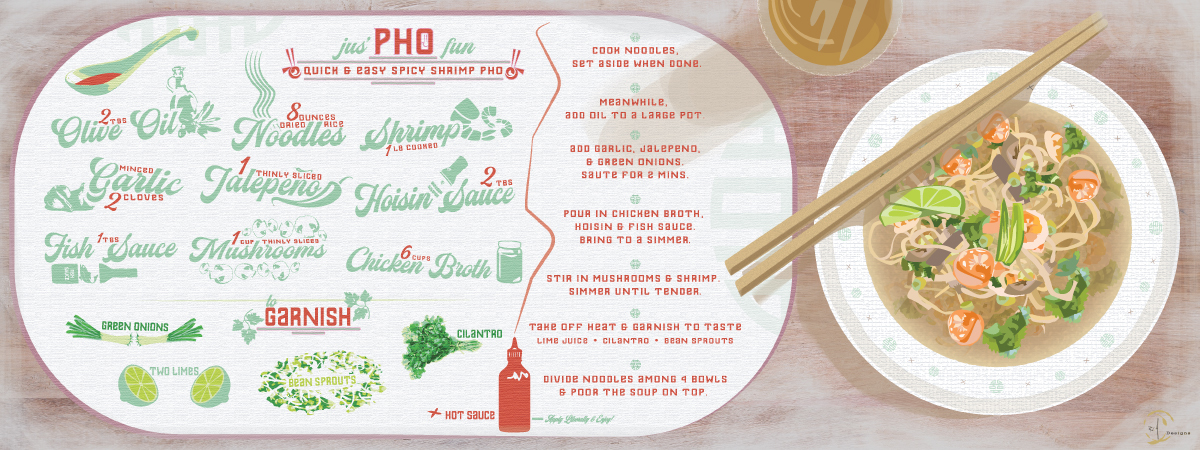 jus' PHO fun
QUICK & EASY SPICY SHRIMP PHO
2 TBS
Olive Oil
8 OUNCES
DRIED RICE
Noodles
Shrimp
1 LB COOKED
MINCED
Garlic
2 CLOVES
1 THINLY SLICED
Jalepeño
2 TBS
Hoisin Sauce
1 TBS
Fish Sauce
1 CUP THINLY SLICED
Mushrooms
6 CUPS
Chicken Broth
to
GARNISH
GREEN ONIONS
CILANTRO
TWO LIMES
BEAN SPROUTS
HOT SAUCE
Apply Liberally & Enjoy!
COOK NOODLES,
SET ASIDE WHEN DONE.
MEANWHILE,
ADD OIL TO A LARGE POT
ADD GARLIC, JALEPENO,
& GREEN ONIONS.
SAUTE FOR 2 MINS.
POUR IN CHICKEN BROTH,
HOISIN & FISH SAUCE.
BRING TO A SIMMER.
STIR IN MUSHROOMS & SHRIMP.
SIMMER UNTIL TENDER.
TAKE OFF HEAT & GARNISH TO TASTE
LIME JUICE • CILANTRO • BEAN SPROUTS
DIVIDE NOODLES AMONG 4 BOWLS
& POOR THE SOUP ON TOP.
Designs